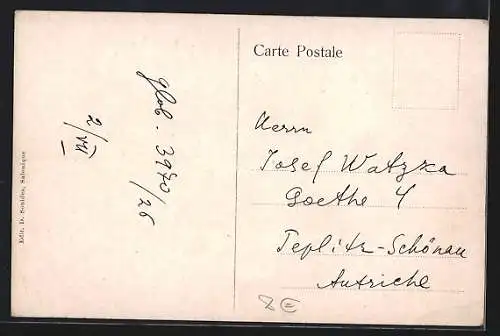 Carte Postale
Herrn
Josef Watzka
Goethe 4
Teplitz-Schönau
Autriche
glob. 3970/26
2/VII
Edit. D. Sonides, Salonique